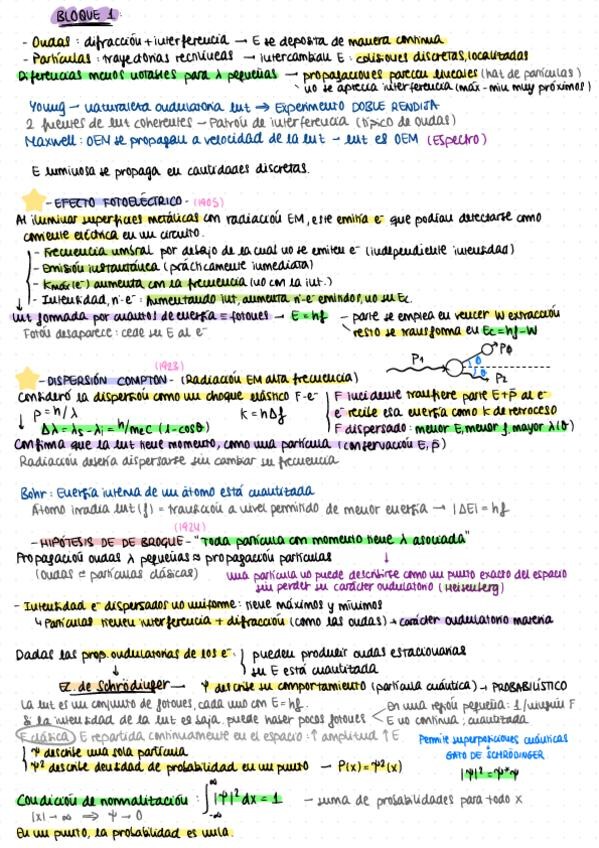 BLOQUE 1:
- Ondas: difracción + interferencia → E se deposita de manera continua
- Partículas: trayectorias rectilíneas → intercambian E: colisiones discretas, localizadas
Diferencias menos notables para λ pequeñas → propagaciones parecen lineales (haz de partículas)
no se aprecia interferencia (max-min muy próximos)
Young → naturaleza ondulatoria luz ⇒ Experimento DOBLE RENDIJA
2 fuentes de luz coherentes → Patrón de interferencia (típico de ondas)
Maxwell: OEM se propagan a velocidad de la luz → luz es OEM (Espectro)
E luminosa se propaga en cantidades discretas.
- EFECTO FOTOELÉCTRICO - (1905)
Al iluminar superficies metálicas con radiación EM, este emitía e⁻ que podían detectarse como
corriente eléctrica en un circuito.
- Frecuencia umbral por debajo de la cual no se emiten e⁻ (independiente intensidad)
- Emisión instantánea (prácticamente inmediata)
- Kmáx(e⁻) aumenta con la frecuencia (no con la int.)
- Intensidad, nº e⁻: Aumentando int, aumenta nº e⁻ emitidos, no su Ec.
luz formada por cuantos de energía ≡ fotones → E = hf - parte se emplea en vencer W extracción
Fotón desaparece: cede su E al e⁻ resto se transforma en Ec = hf - W
(1923)
- DISPERSIÓN COMPTON - (Radiación EM alta frecuencia)
P₁ Pϕ θ θ P₂
Consideró la dispersión como un choque elástico F-e⁻ F incidente transfiere parte E+p̄ al e⁻
p = h/λ K = hΔf e⁻ recibe esa energía como K de retroceso
Δλ = λs - λi = h/mec (1 - cosθ) F dispersado: menor E, menor f, mayor λ(θ)
Confirma que la luz tiene momento, como una partícula (conservación E, p̄)
Radiación debería dispersarse sin cambiar su frecuencia
Bohr: Energía interna de un átomo está cuantizada
Átomo irradia luz (f) = transición a nivel permitido de menor energía → |ΔE| = hf
(1924)
- HIPÓTESIS DE DE BROGLIE - "Toda partícula con momento tiene λ asociada"
Propagación ondas λ pequeñas ≈ propagación partículas
(ondas ≡ partículas clásicas) una partícula no puede describirse como un punto exacto del espacio
sin perder su carácter ondulatorio (Heisenberg)
- Intensidad e⁻ dispersados no uniforme: tiene máximos y mínimos
↳ Partículas tienen interferencia + difracción (como las ondas) → carácter ondulatorio materia
Dadas las prop. ondulatorias de los e⁻: pueden producir ondas estacionarias
su E está cuantizada
Ez. de Schrödinger → Ψ describe su comportamiento (partícula cuántica) → PROBABILÍSTICO
La luz es un conjunto de fotones, cada uno con E = hf.
Si la intensidad de la luz es baja, puede haber pocos fotones en una región pequeña: 1/ningún F
E no continua; cuantizada
F. clásica) E repartida continuamente en el espacio: ↑ amplitud ↑ E
Permite superposiciones cuánticas
GATO DE SCHRÖDINGER
|Ψ|² = Ψ*Ψ
Ψ describe una sola partícula
Ψ² describe densidad de probabilidad en un punto → P(x) = Ψ²(x)
Condición de normalización: ∫ |Ψ|² dx = 1 - suma de probabilidades para todo x
|x| → ∞ ⇒ Ψ → 0
En un punto, la probabilidad es nula.